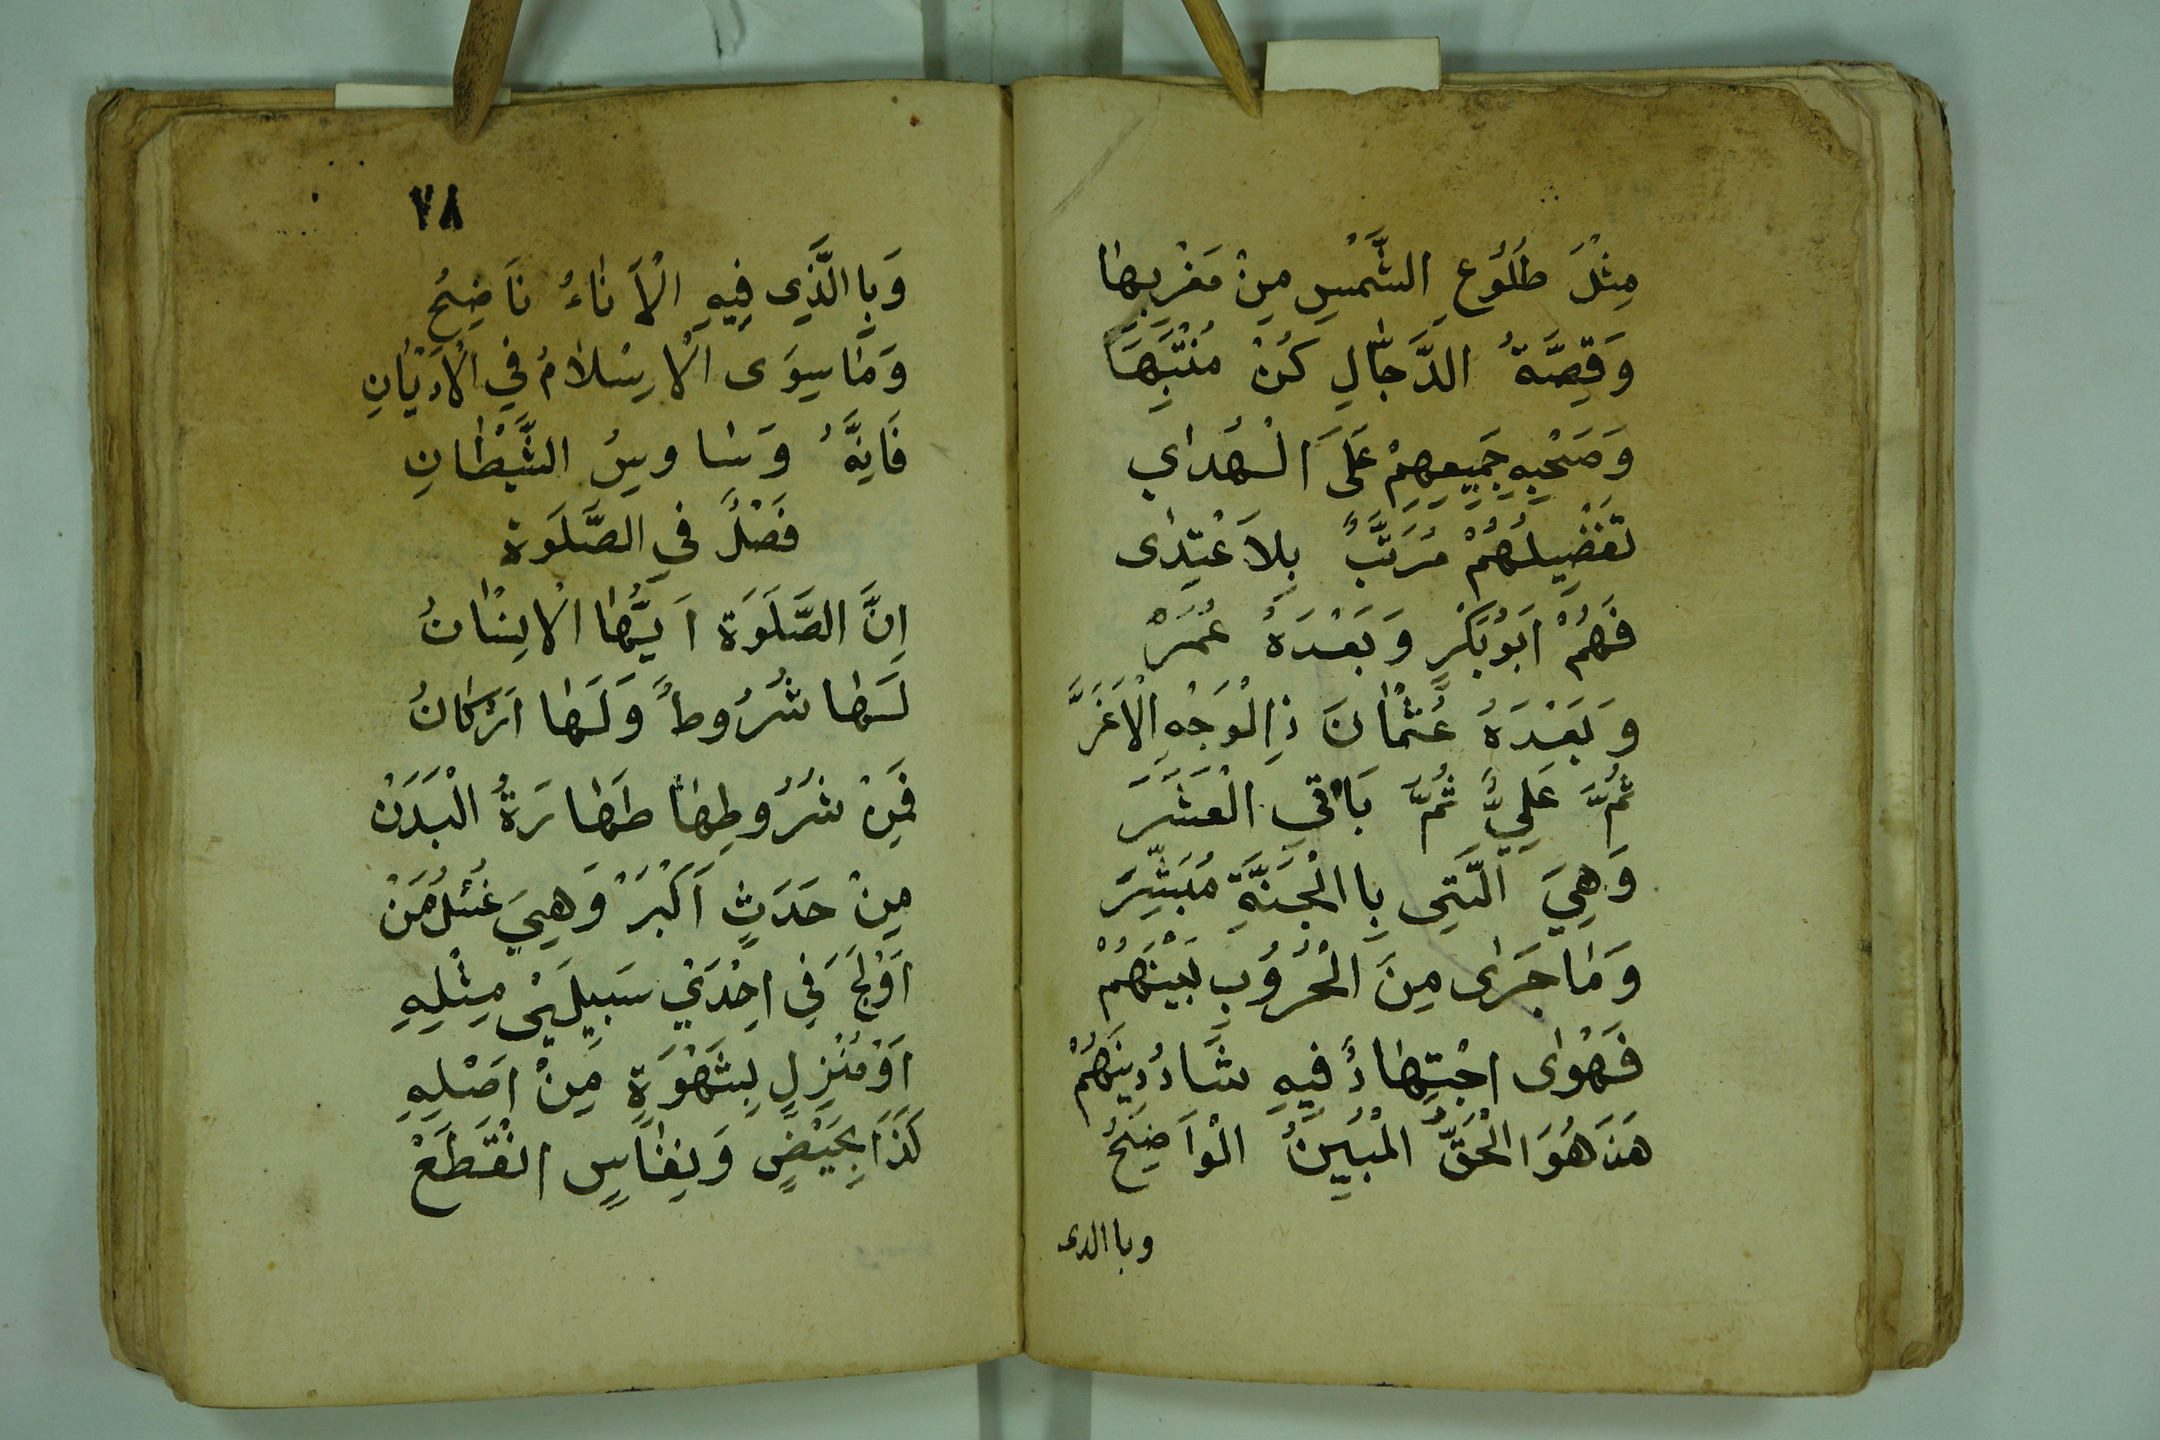 مِثْلَ طُلُوعِ الشَّمْسِ مِنْ مَغْرِبِهَا
وَقِصَّةُ الدَّجَّالِ كُنْ مُنْتَبِهَا
وَصَحْبِهِ جَمِيعِهِمْ عَلَى الْهُدَاي
تَفْضِيلُهُمْ مُرَتَّبٌ بِلَا عْتِدٰى
فَهُمْ اَبُوْبَكْرٍ وَبَعْدَهُ عُمَرْ
وَبَعْدَهُ عُثْمَانَ ذِالْوَجْهِ الْاَغَرَّ
ثُمَّ عَلِيٌّ ثُمَّ بَاقِي الْعَشَرَ
وَهِيَ الَّتِى بِاالْجَنَّةِ مُبَشِّرَ
وَمَا جَرٰى مِنَ الْحُرُوبِ بَيْنَهُمْ
فَهْوٰى اجْتِهَادٌ فِيهِ شَادُدِينَهُمْ
هَذَهُوَالْحَقُّ الْمُبِينُ الْوَاضِحُ
وباالدى
٧٨
وَبِاالَّذِى فِيهِ الْاَنَاءُ نَاضِحُ
وَمَاسِوَى الْاِسْلَامُ فِي الْاَدْيَانِ
فَاِنَّهُ وَسَاوِسُ الشَّيْطَانِ
فَصْلٌ فِي الصَّلَوة
اِنَّ الصَّلَوَة اَيُّهَا الْاِنْسَانُ
لَهَا شُرُوطٌ وَلَهَا اَرْكَانُ
فَمِنْ شُرُوطِهَا طَهَارَةُ الْبَدَنْ
مِنْ حَدَثٍ اَكْبَرْ وَهِيَ غُسْلُ مَنْ
اَوْلَجَ فِي اِحْدَيْ سَبِيلَيْ مِثْلِهِ
اَوْمُنْزِلٍ بِشَهْوَةٍ مِنْ اَصْلِهِ
كَذَا بِحَيْضٍ وَنِفَاسٍ انْقَطَعْ